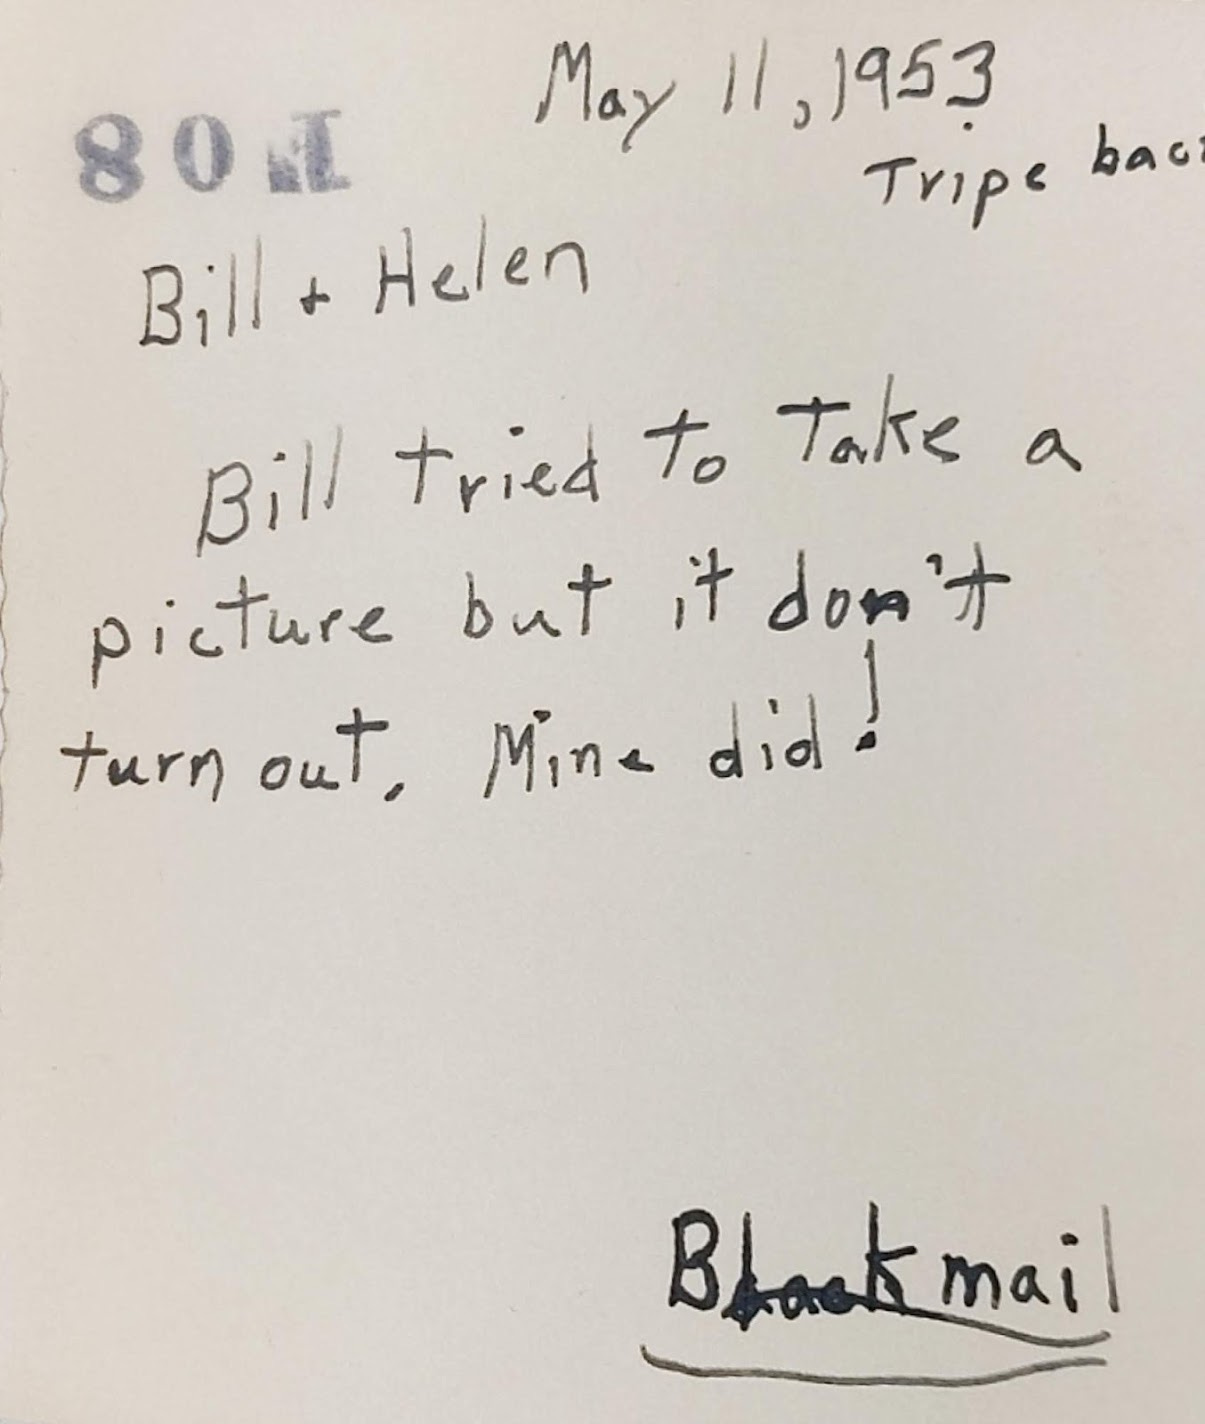 May 11, 1953
Tripe bac
801
Bill + Helen
Bill tried to take a
picture but it don't
turn out. Mine did!
Blackmail